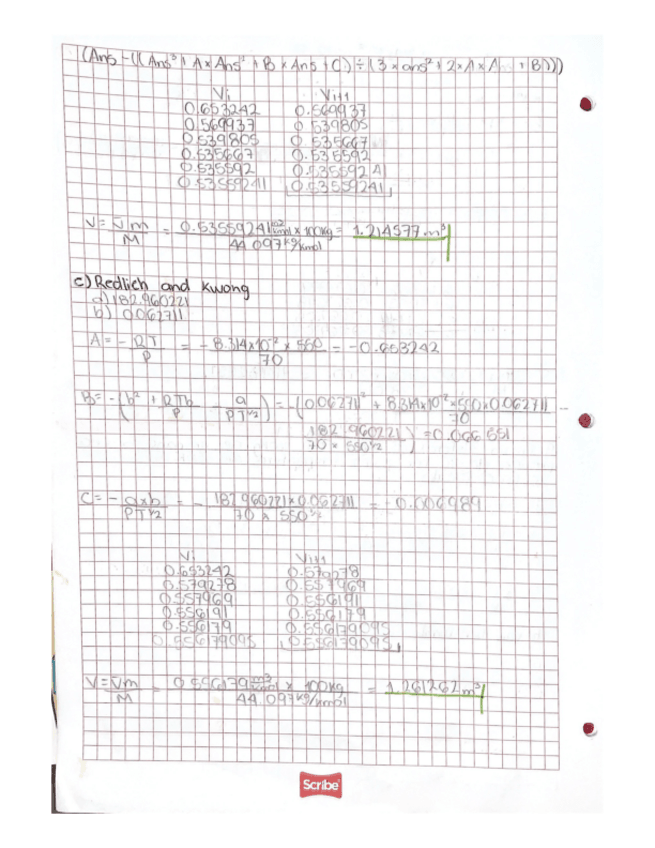 (Ans - (( Ans³ + A × Ans² + B × Ans + C) ÷ (3 × ans² + 2 × A × A + B))))
Vi Vi+1
0.653242 0.569937
0.569937 0.539805
0.539805 0.535667
0.535667 0.535592
0.535592 0.5355924
0.53559241 0.53559241
V = V̄m/M = 0.53559241 m³/kmol × 100kg / 44.097 kg/kmol = 1.214577 m³
c) Redlich and Kwong
a) 182.960221
b) 0.062711
A = - RT/P = - 8.314×10⁻² × 550 / 70 = -0.653242
B = -(b² + RTb/P - a/PT^1/2) = -(0.062711² + 8.314×10⁻²×550×0.062711 / 70 -
182.960221 / 70 × 550^1/2) = 0.066551
C = - a×b / PT^1/2 = - 182.960221×0.062711 / 70 × 550^1/2 = -0.006989
Vi Vi+1
0.653242 0.579278
0.579278 0.557969
0.557969 0.556191
0.556191 0.556179
0.556179 0.556179095
0.556179095 0.556179095
V = V̄m/M = 0.556179 m³/kmol × 100kg / 44.097 kg/kmol = 1.261262 m³
Scribe